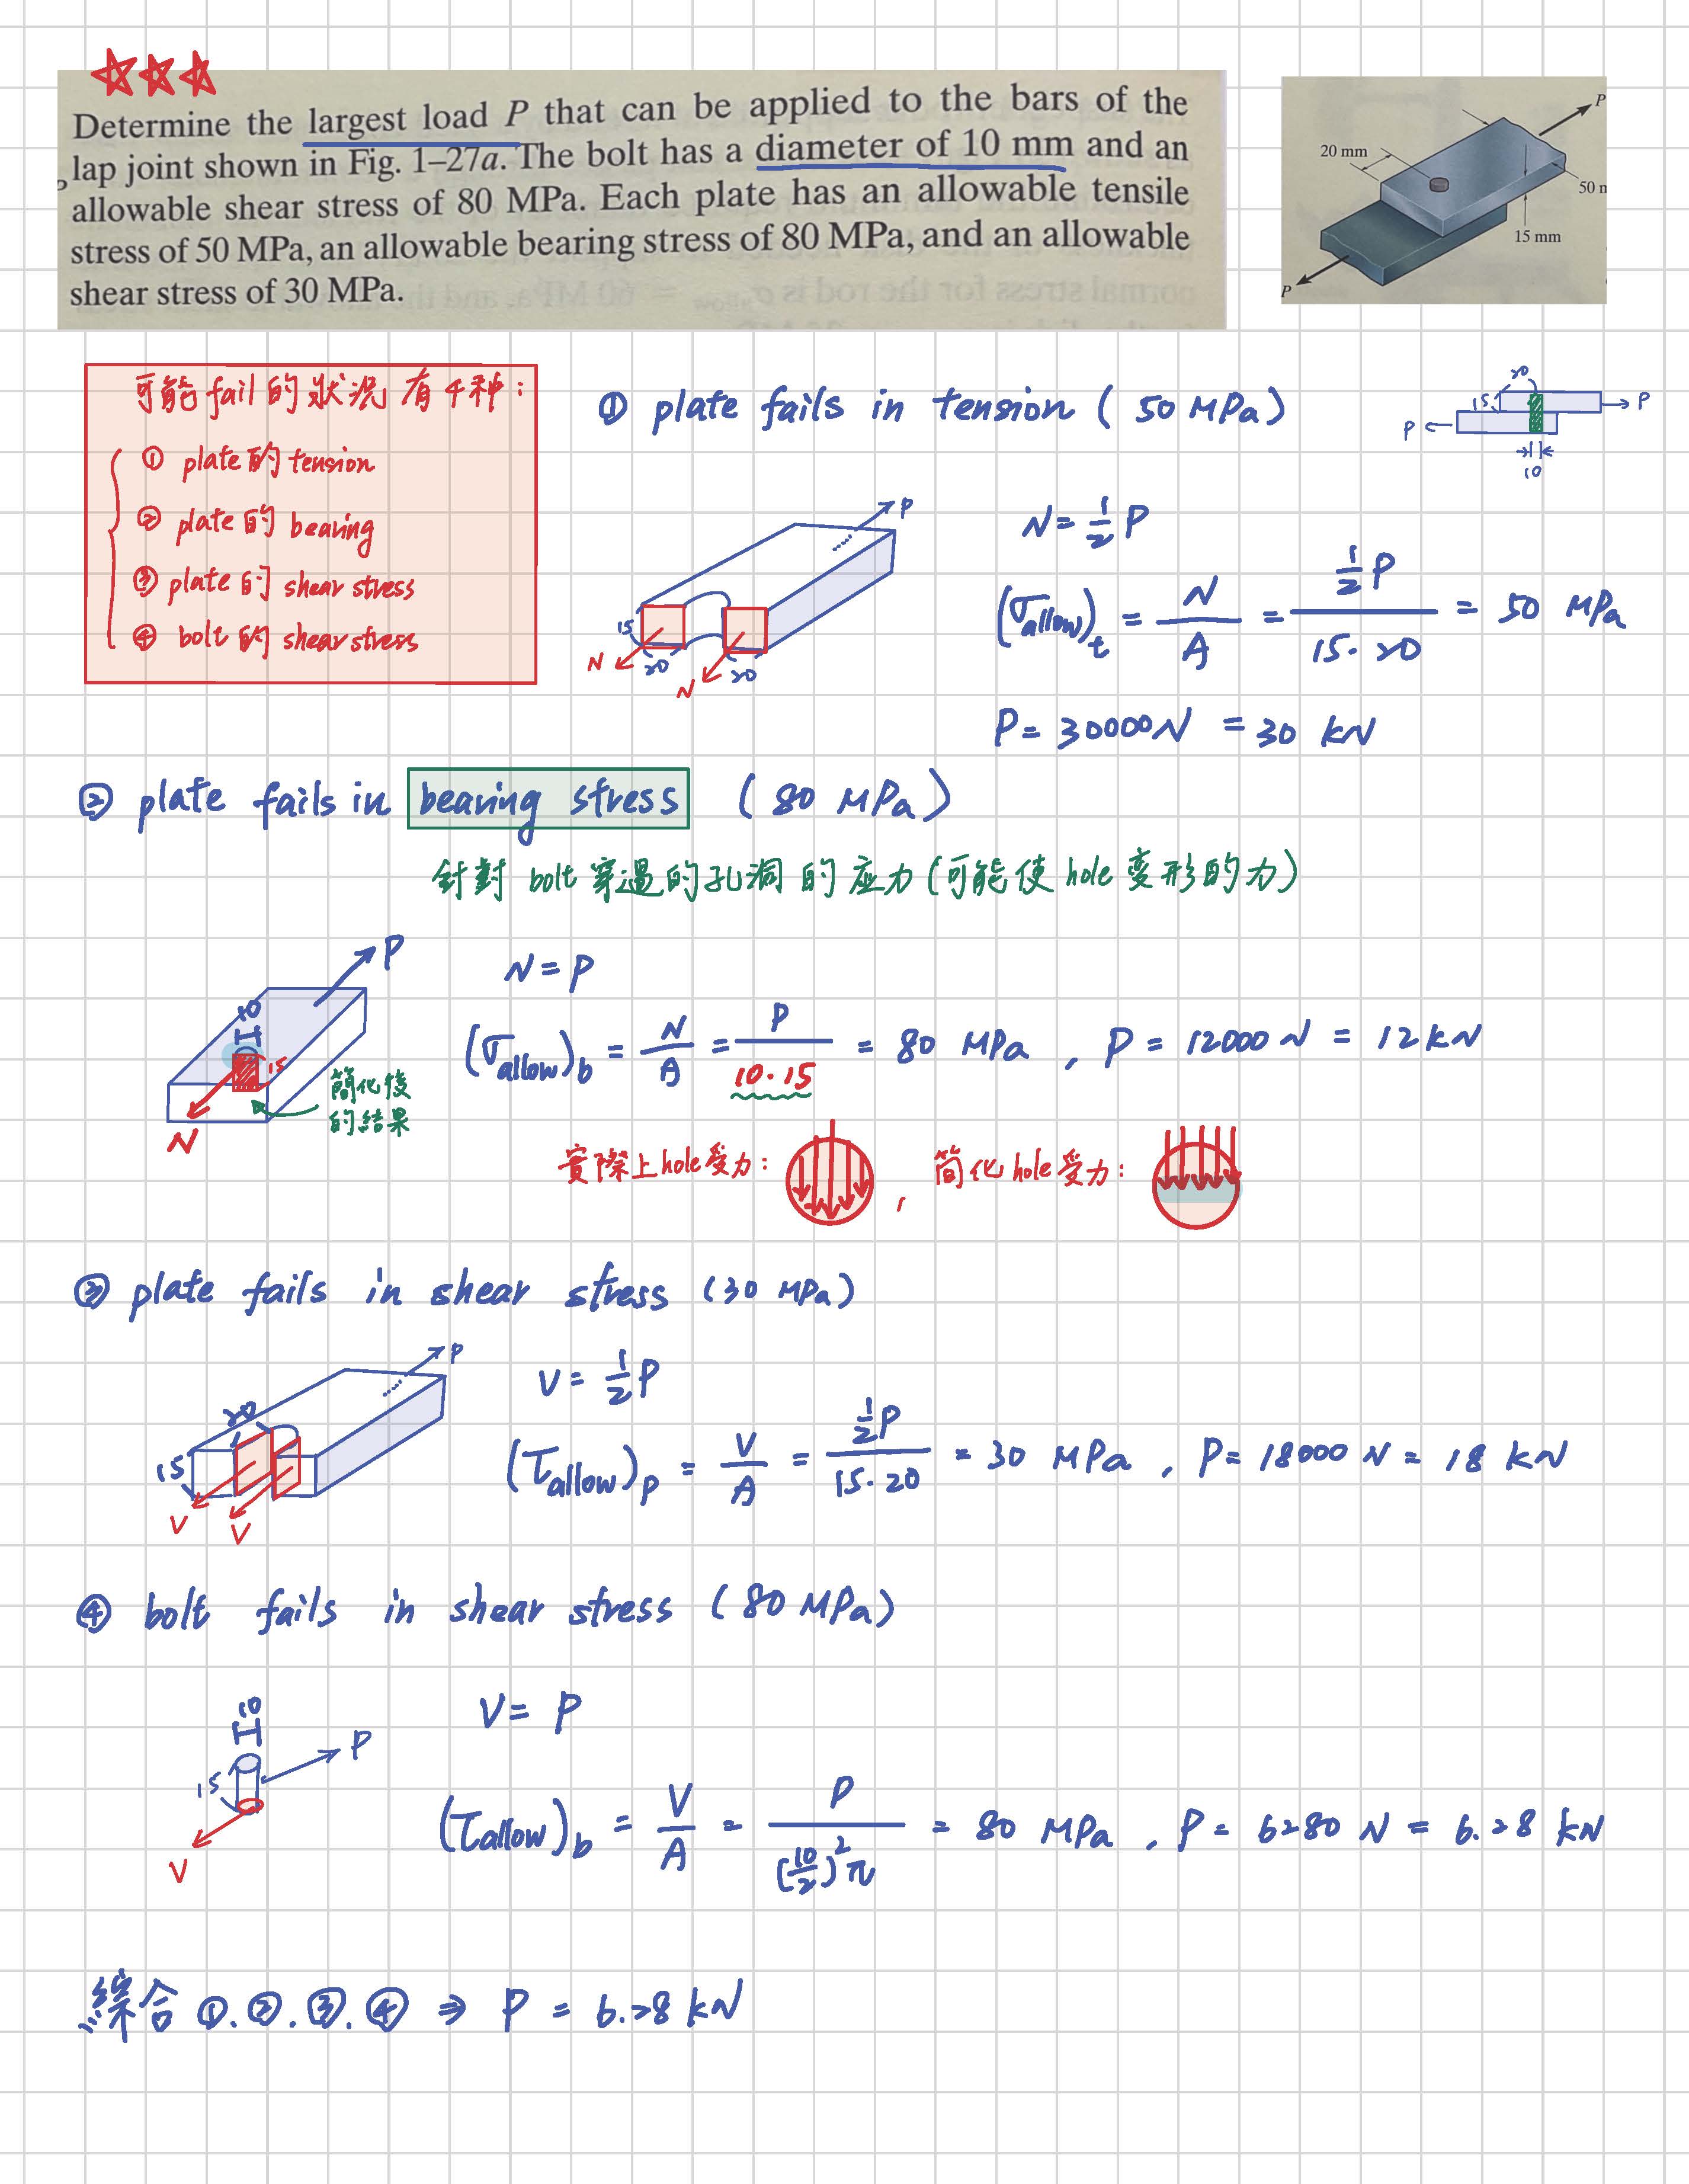 Determine the largest load P that can be applied to the bars of the
lap joint shown in Fig. 1–27a. The bolt has a diameter of 10 mm and an
allowable shear stress of 80 MPa. Each plate has an allowable tensile
stress of 50 MPa, an allowable bearing stress of 80 MPa, and an allowable
shear stress of 30 MPa.
P
20 mm
50 m
15 mm
P
可能fail的狀況有4种:
① plate的tension
② plate的bearing
③ plate的shear stress
④ bolt的shear stress
① plate fails in tension (50 MPa)
20
15
P
P
10
P
15
20
20
N
N
N = 1/2 P
(σallow)t = N/A = (1/2 P)/(15·20) = 50 MPa
P = 30000N = 30 kN
② plate fails in bearing stress (80 MPa)
針對 bolt 穿過的孔洞的应力(可能使hole变形的力)
P
10
15
N
簡化後
的結果
N = P
(σallow)b = N/A = P/(10·15) = 80 MPa , P = 12000 N = 12 kN
實際上hole受力: , 简化hole受力:
③ plate fails in shear stress (30 MPa)
P
20
15
V
V
V = 1/2 P
(τallow)p = V/A = (1/2 P)/(15·20) = 30 MPa , P = 18000 N = 18 kN
④ bolt fails in shear stress (80 MPa)
10
P
15
V
V = P
(τallow)b = V/A = P/((10/2)²π) = 80 MPa , P = 6280 N = 6.28 kN
綜合 ①.②.③.④ ⇒ P = 6.28 kN